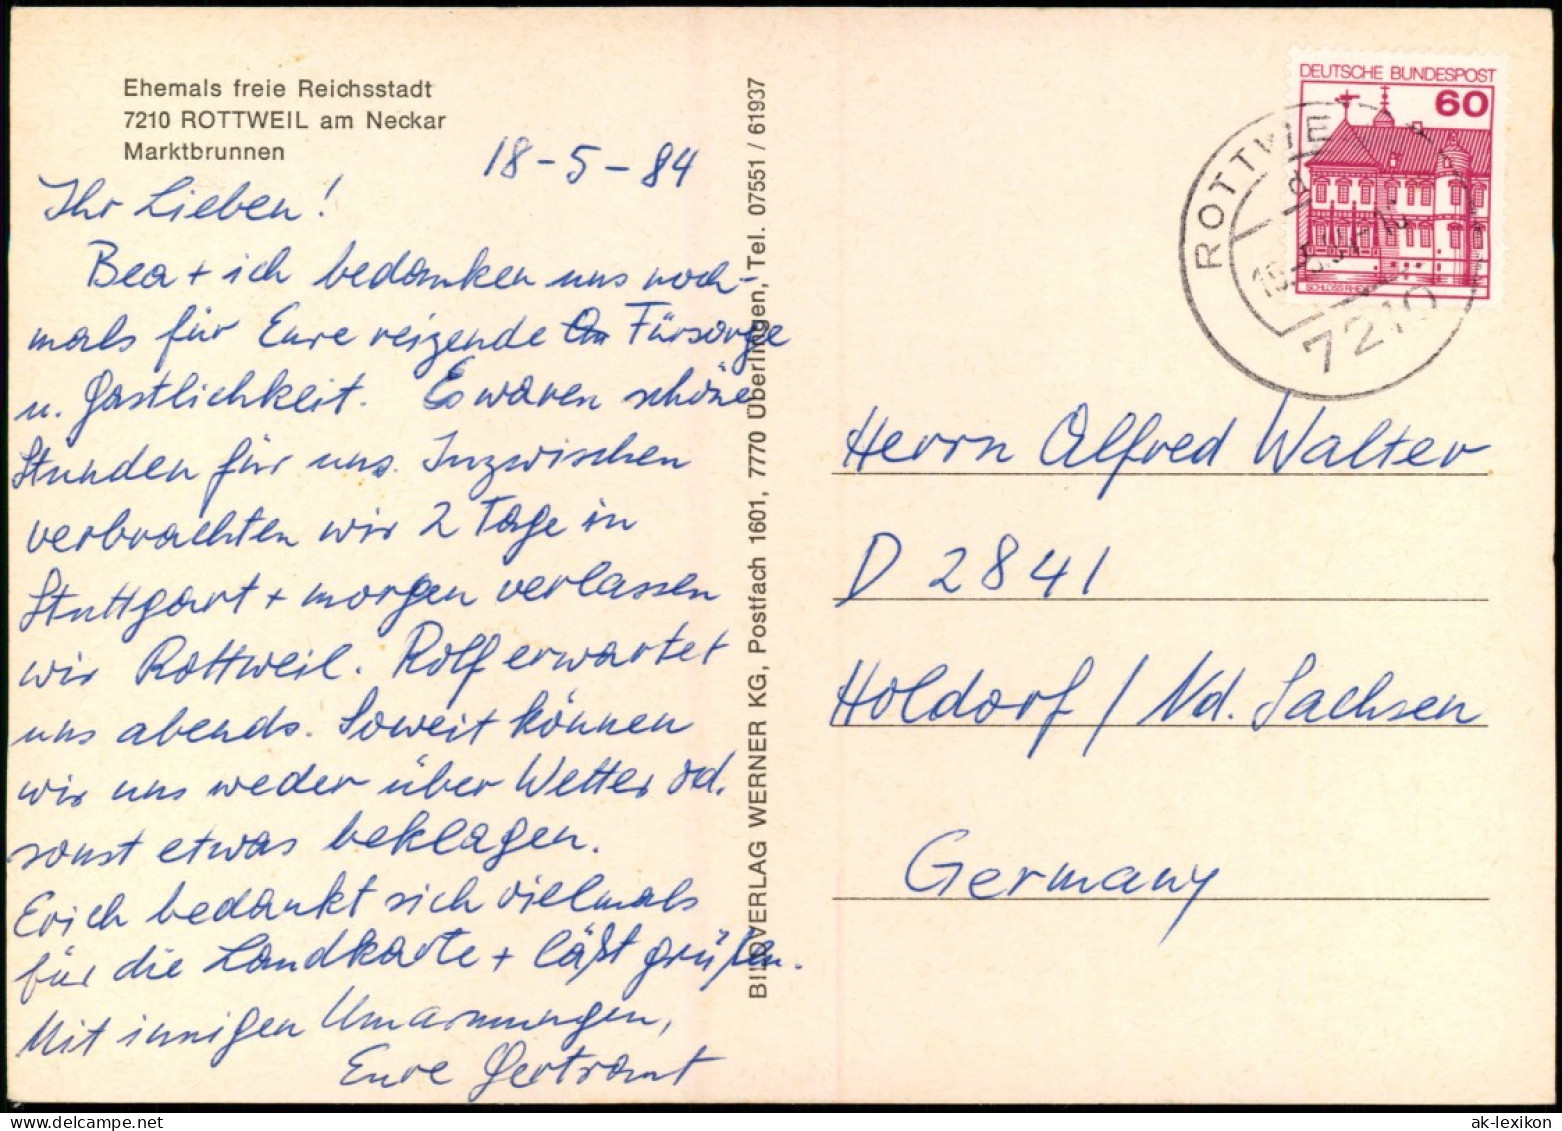 Ehemals freie Reichsstadt
7210 ROTTWEIL am Neckar
Marktbrunnen
18-5-84
Ihr Lieben!
Bea + ich bedanken uns noch-
mals für Eure reizende Fürsorge
u. Gastlichkeit. Es waren schöne
Stunden für uns. Inzwischen
verbrachten wir 2 Tage in
Stuttgart + morgen verlassen
wir Rottweil. Rolf erwartet
uns abends. Soweit können
wir uns weder über Wetter od.
sonst etwas beklagen.
Erich bedankt sich vielmals
für die Landkarte + läßt grüßen.
Mit innigen Umarmungen,
Eure Gertraut
BILDVERLAG WERNER KG, Postfach 1601, 7770 Überlingen, Tel. 07551 / 61937
DEUTSCHE BUNDESPOST
60
SCHLOSS RHE
ROTTWE
d
7210
Herrn Alfred Walter
D 2841
Holdorf / Nd. Sachsen
Germany
ak-lexikon